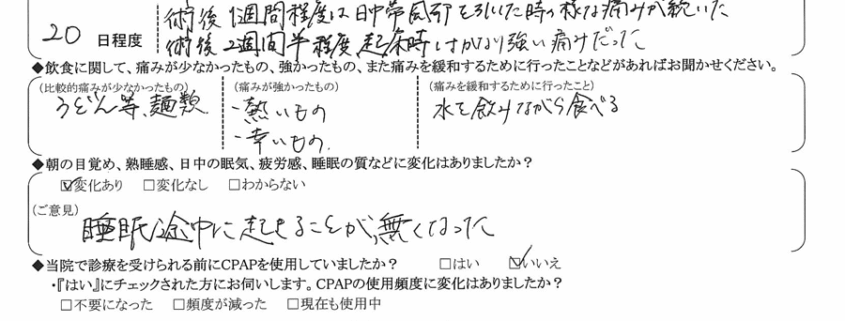 術後1週間程度は日中常風邪を引いた時の様な痛みが続いた
20 日程度 術後2週間半程度起床時はかなり強い痛みだった
◆飲食に関して、痛みが少なかったもの、強かったもの、また痛みを緩和するために行ったことなどがあればお聞かせください。
(比較的痛みが少なかったもの) (痛みが強かったもの) (痛みを緩和するために行ったこと)
うどん等、麺類 ・熱いもの 水を飲みながら食べる
・辛いもの
◆朝の目覚め、熟睡感、日中の眠気、疲労感、睡眠の質などに変化はありましたか?
☑変化あり □変化なし □わからない
(ご意見)
睡眠途中に起きることが、無くなった
◆当院で診療を受けられる前にCPAPを使用していましたか? □はい ☑いいえ
・『はい』にチェックされた方にお伺いします。CPAPの使用頻度に変化はありましたか?
□不要になった □頻度が減った □現在も使用中